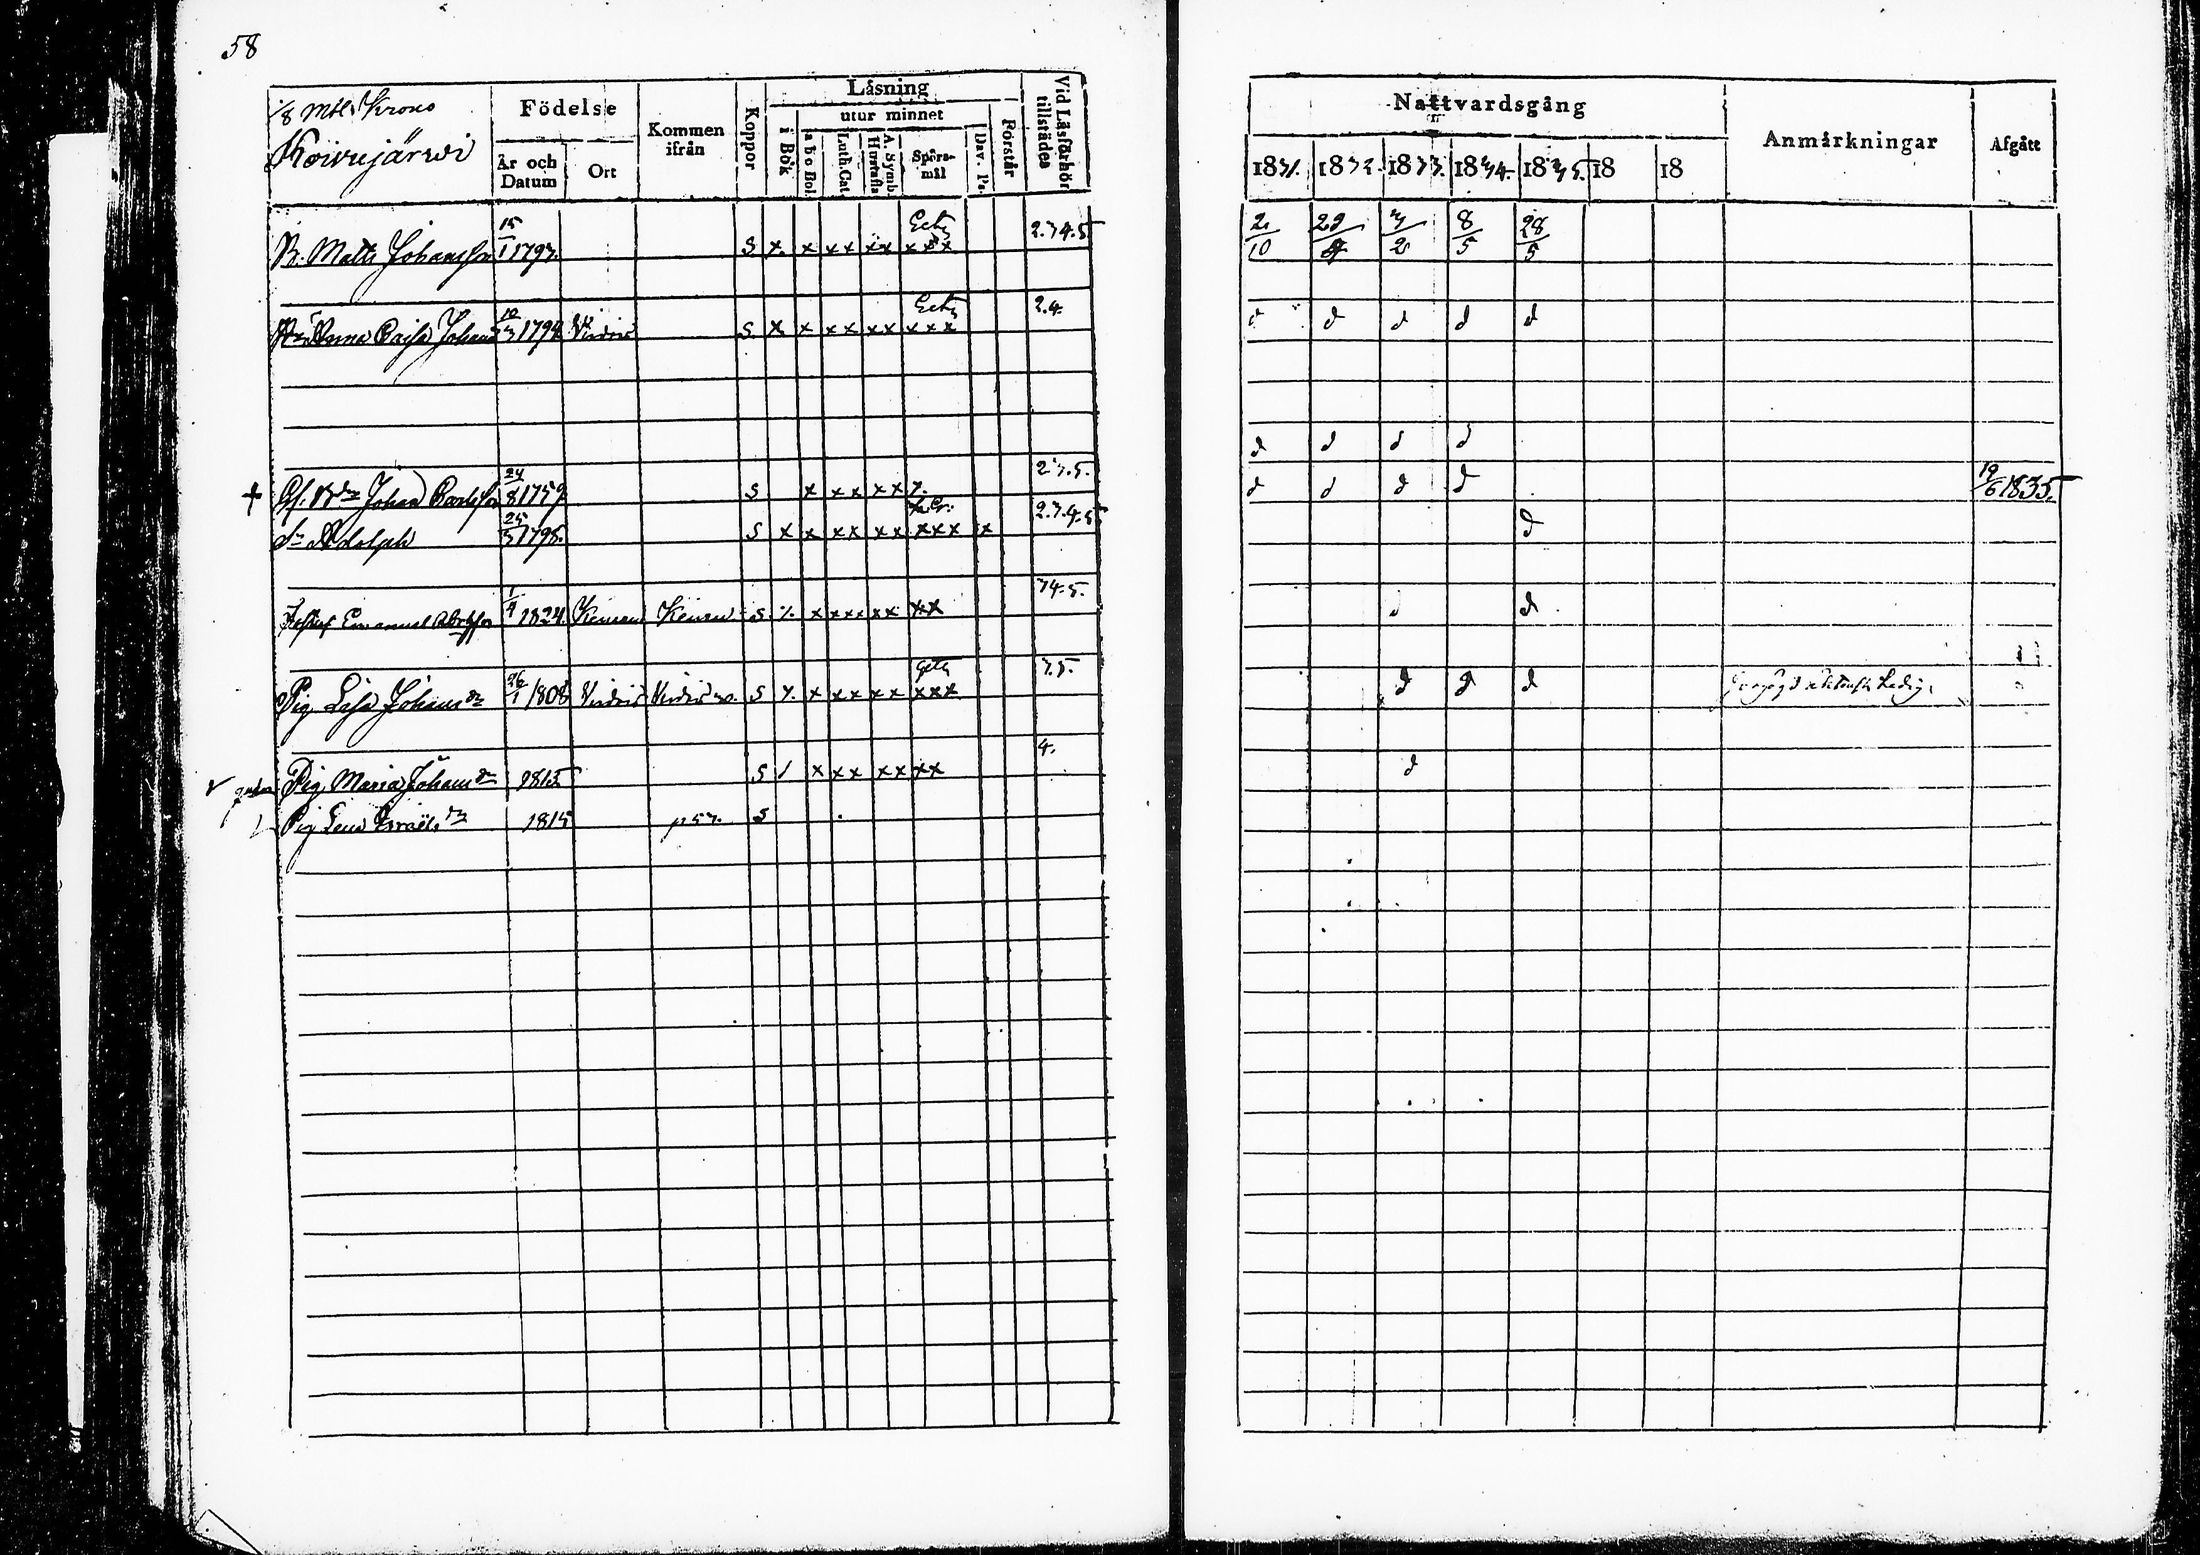 58
1/8 Mtl. Krono
Koivujärwi
Födelse
År och Datum
Ort
Kommen ifrån
Koppor
Läsning
utur minnet
i Bok
a b c Bok.
Luth. Cat.
A. Symb. Hustafla
Spörsmål
Dav. Ps.
Förstår
Vid Läsförhör tillstädes
B. Matts Johansson 15/1 1793. S x. x xx xx xxx 2.3.4.5
Anna Caisa Johansd 10/3 1794 Virdois S x x xx xx xxx 2.4.
+ Johan Carlsson 24/8 1759 S x xx xx x. 2.3.5.
Sn Adolph 25/3 1798. S x x xx xx xxx x 2.3.4.5
Emanuel 1/4 1824. Keuru Keuru S x xxx xx xx 3.4.5.
Pig. Lisa Johansdr 26/1 1808 Virdois Virdois S x. x xx xx xxx 3.5.
Pig. Maria Johansdr 1815 S / x xx xx xx 4.
Pig Lena Israelsdr 1815 p 57. S
Nattvardsgång
Anmärkningar
Afgått
1831. 1832. 1833. 1834. 1835. 18 18
2/10 3/2 8/5 28/5
d d d d d
d d d d
d d d d 19/6 1835.
d
d d
d d d
d